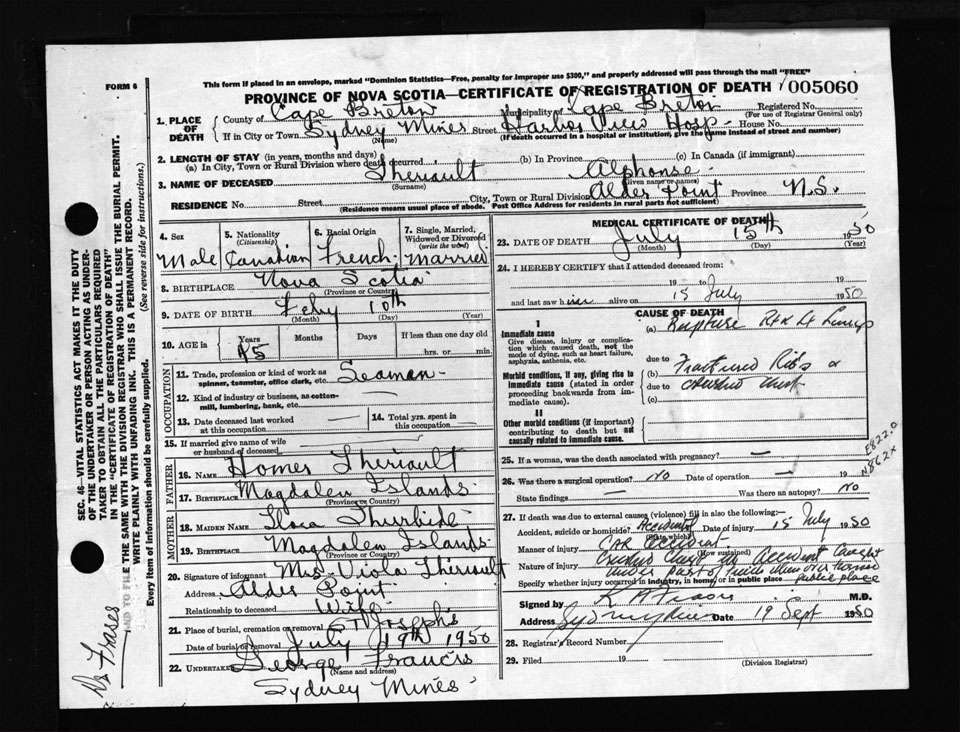 This form if placed in an envelope, marked "Dominion Statistics—Free, penalty for improper use $300," and properly addressed will pass through the mail "FREE"
FORM 6
PROVINCE OF NOVA SCOTIA—CERTIFICATE OF REGISTRATION OF DEATH
005060
1. PLACE OF DEATH
County of Cape Breton Municipality of Cape Breton Registered No.
(For use of Registrar General only)
If in City or Town Sydney Mines Street Harbor View Hosp - House No.
(Name) (If death occurred in a hospital or institution, give the name instead of street and number)
2. LENGTH OF STAY (in years, months and days)
(a) In City, Town or Rural Division where death occurred (b) In Province (c) In Canada (if immigrant)
3. NAME OF DECEASED Theriault Alphonse
(Surname) (Given name or names)
RESIDENCE No. Street City, Town or Rural Division Alder Point Province N.S.
(Residence means usual place of abode. Post Office Address for residents in rural parts not sufficient)
4. Sex Male
5. Nationality (Citizenship) Canadian
6. Racial Origin French
7. Single, Married, Widowed or Divorced (write the word) Married
8. BIRTHPLACE Nova Scotia
(Province or Country)
9. DATE OF BIRTH Feby 10th
(Month) (Day) (Year)
10. AGE in Years 45 Months Days If less than one day old
hrs. or min.
OCCUPATION
11. Trade, profession or kind of work as spinner, teamster, office clerk, etc. Seaman
12. Kind of industry or business, as cotton-mill, lumbering, bank, etc.
13. Date deceased last worked at this occupation
14. Total yrs. spent in this occupation
15. If married give name of wife or husband of deceased
FATHER
16. Name Homer Theriault
17. Birthplace Magdalen Islands
(Province or Country)
MOTHER
18. Maiden Name
19. Birthplace Magdalen Islands
(Province or Country)
20. Signature of informant Mrs Viola Theriault
Address Alder Point
Relationship to deceased Wife
21. Place of burial, cremation or removal St Josephs
Date of burial or removal July 19th 1950
22. Undertaker George Francis
(Name and address)
Sydney Mines
MEDICAL CERTIFICATE OF DEATH
23. DATE OF DEATH July 15th 1950
(Month) (Day) (Year)
24. I HEREBY CERTIFY that I attended deceased from:
19 to 19
and last saw him alive on 15 July 1950
CAUSE OF DEATH
I
Immediate cause
Give disease, injury or complication which caused death, not the mode of dying, such as heart failure, asphyxia, asthenia, etc.
(a) Rupture Rt & Lt Lungs
due to
Morbid conditions, if any, giving rise to immediate cause (stated in order proceeding backwards from immediate cause).
(b) Fractured Ribs &
due to crushed chest
(c)
II
Other morbid conditions (if important) contributing to death but not causally related to immediate cause.
25. If a woman, was the death associated with pregnancy? —
E822.0
N862X
26. Was there a surgical operation? No Date of operation — 19
State findings — Was there an autopsy? No
27. If death was due to external causes (violence) fill in also the following:—
Accident, suicide or homicide? Accident Date of injury 15 July 1950
(State which)
Manner of injury Car accident
(How sustained)
Nature of injury Crushed chest in accident caught
under part of
Specify whether injury occurred in industry, in home, or in public place public place
Signed by M.D.
Address Sydney Mines Date 19 Sept 1950
28. Registrar's Record Number
29. Filed 19
(Division Registrar)
SEC. 46—VITAL STATISTICS ACT MAKES IT THE DUTY
OF THE UNDERTAKER OR PERSON ACTING AS UNDERTAKER TO OBTAIN ALL THE PARTICULARS REQUIRED
IN THE "CERTIFICATE OF REGISTRATION OF DEATH"
AND TO FILE THE SAME WITH THE DIVISION REGISTRAR WHO SHALL ISSUE THE BURIAL PERMIT.
WRITE PLAINLY WITH UNFADING INK. THIS IS A PERMANENT RECORD.
Every item of Information should be carefully supplied. (See reverse side for instructions.)
Dr Fraser